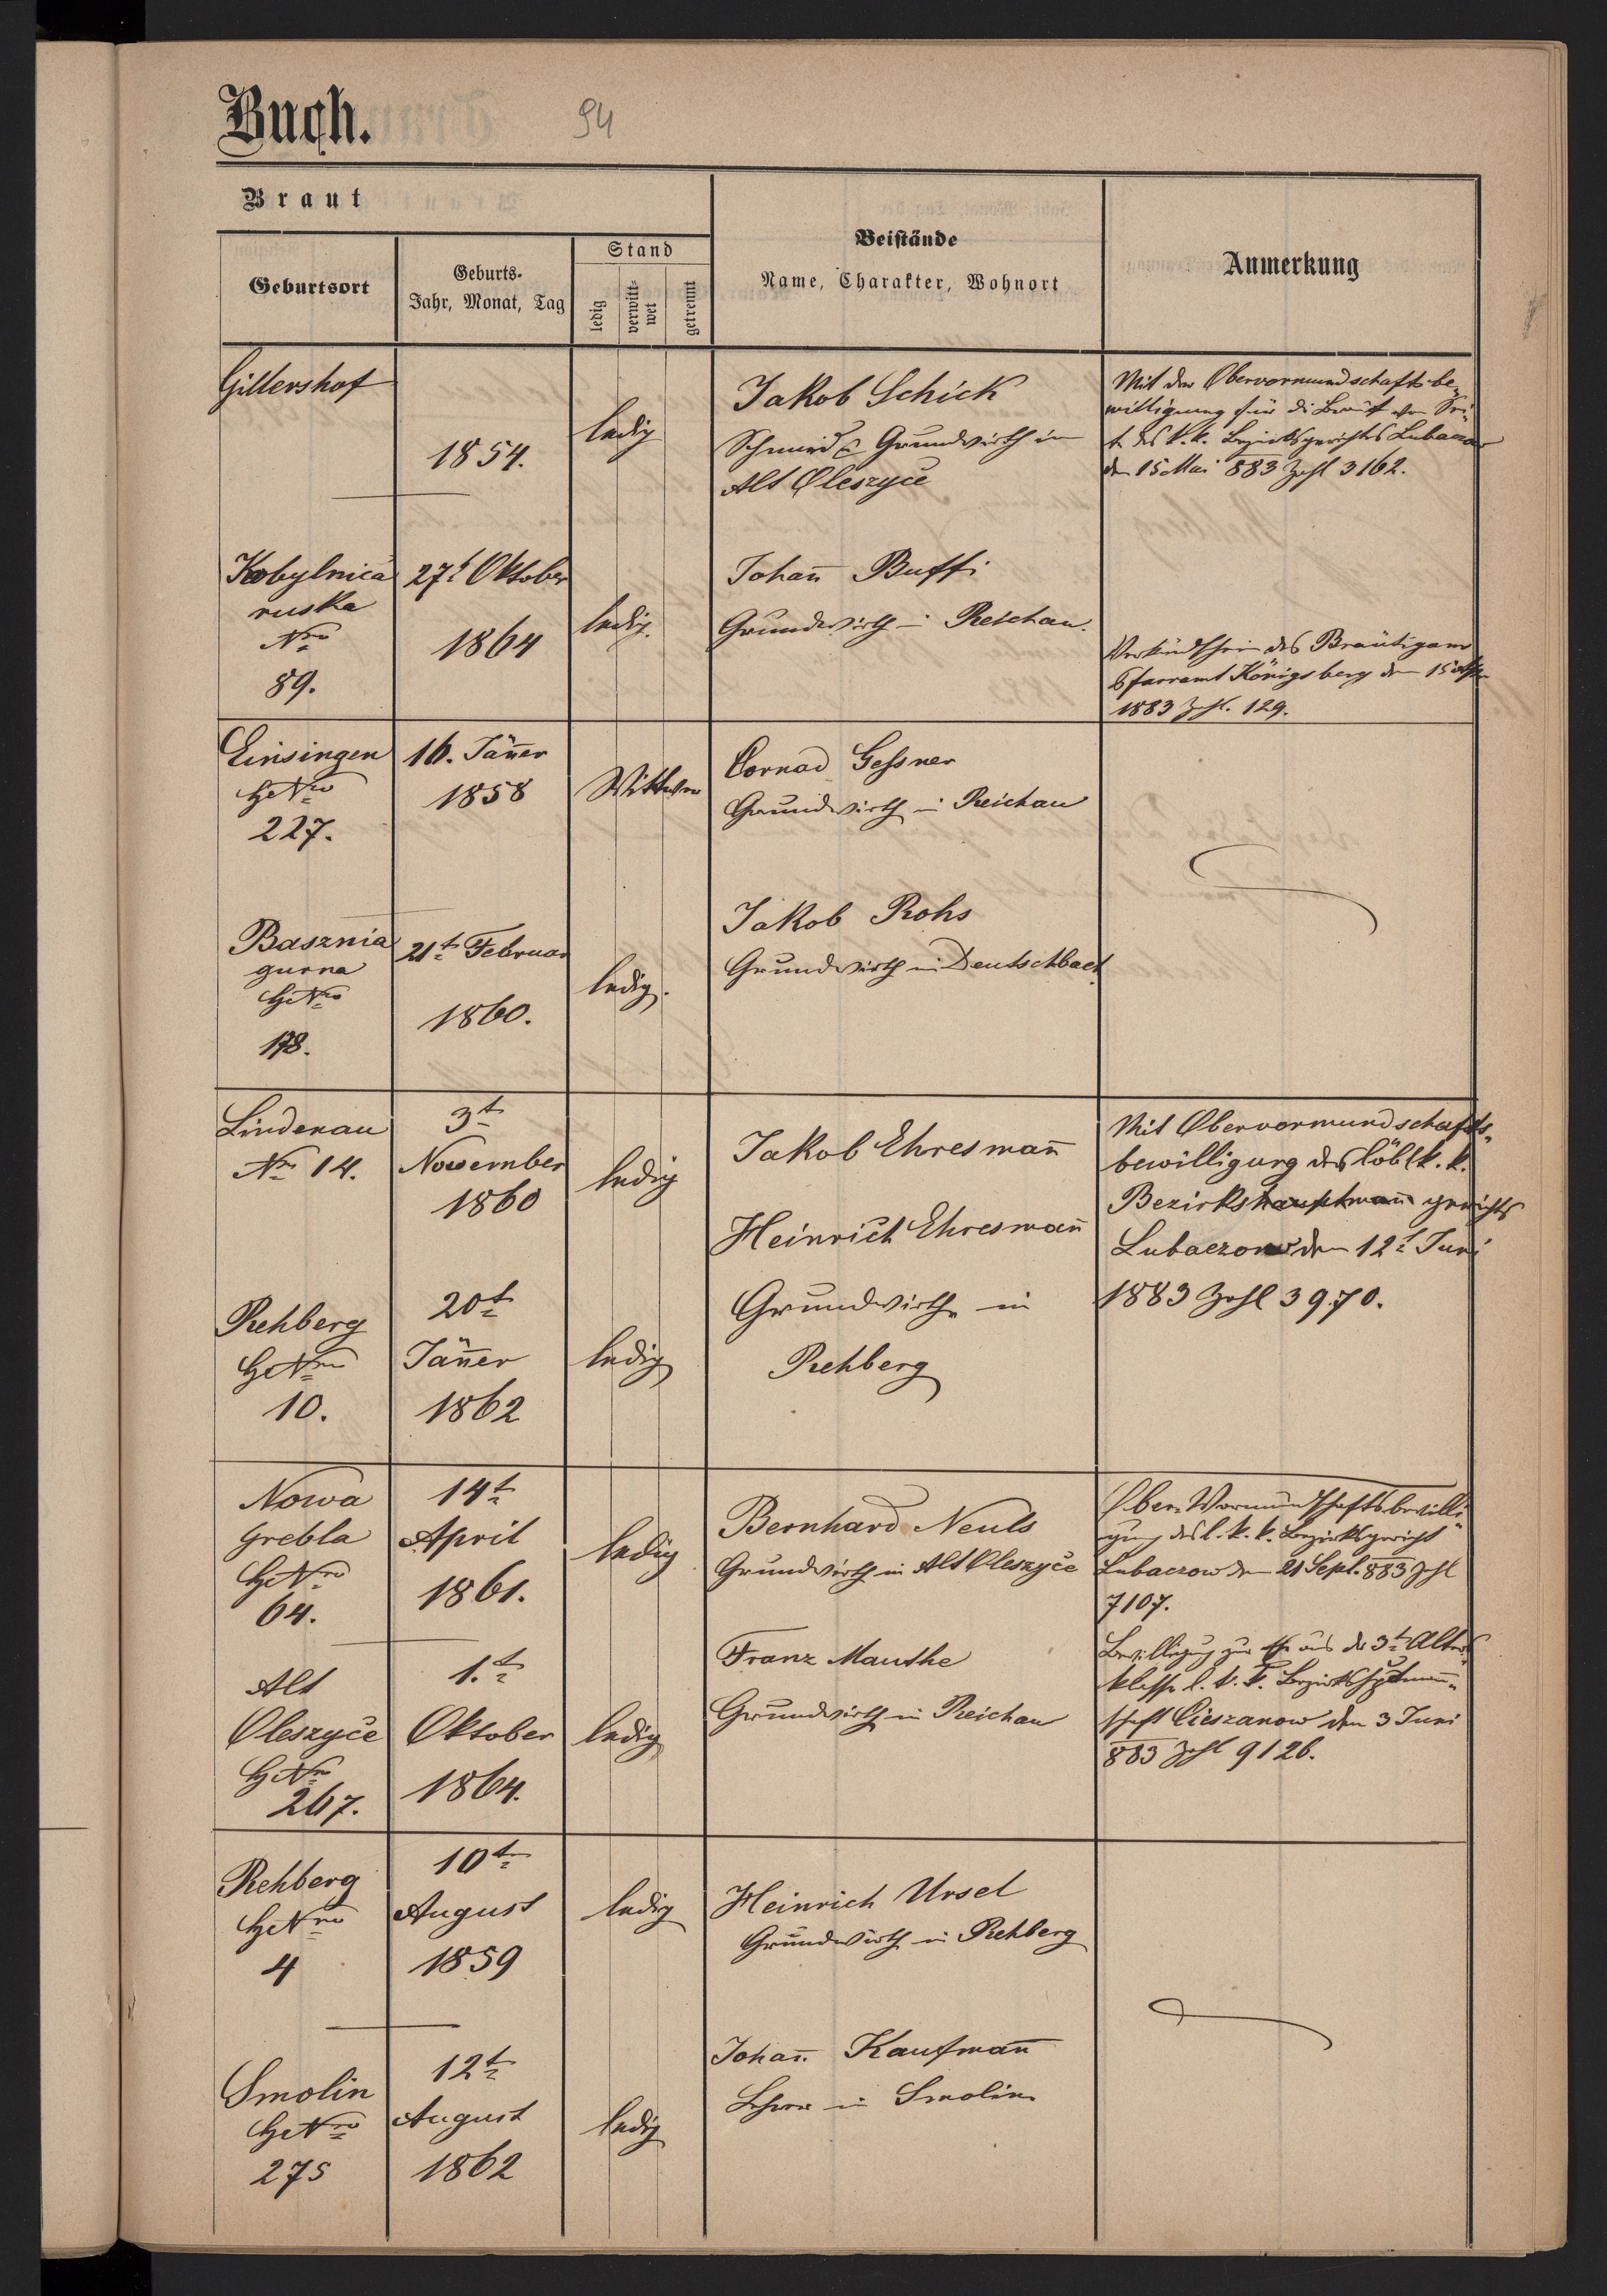 Buch.
94
Braut
Geburtsort
Geburts-
Jahr, Monat, Tag
Stand
ledig
verwitt-
wet
getrennt
Beistände
Name, Charakter, Wohnort
Anmerkung
Gillershof
1854.
ledig
Jakob Schick
Schmied & Grundwirth in
Alt Oleszyce
Mit der Obervormundschafts be-
willigung für die Braut von
des k. k. Bezirksgerichts Lubaczow
den 15 Mai 883 Zahl 3162.
Kobylnica
ruska
Nro
89.
27t Oktober
1864
ledig.
Johan̄ Buffi
Grundwirth in Reichau.
des Bräutigams
Pfarramt Königsberg den 15
1883 Zahl. 129.
Einsingen
HNro
227.
16. Jän̄er
1858
Wittwe
Cornad Gessner
Grundwirth in Reichau
Basznia
gurna
HNro
178.
21t Februar
1860.
ledig.
Jakob Rohs
Grundwirth in Deutschbach
Lindenau
Nro 14.
3t
November
1860
ledig
Jakob Ehresman̄
Heinrich Ehresman̄
Grundwirthe in
Rehberg
Mit Obervormundschafts-
bewilligung des löbl k. k.
Bezirkshauptman̄ gerichts
Lubaczow den 12t Juni
1883 Zahl 3970.
Rehberg
HNro
10.
20t
Jän̄er
1862
ledig
Nowa
Grebla
HNro
64.
14t
April
1861.
ledig
Bernhard Neuls
Grundwirth in Alt Oleszyce
Ober Vormundschaftsbewilli-
gung des l. k. k. Bezirksgericht
Lubaczow den 21 Sept. 883 Zahl
7107.
Alt
Oleszyce
HNro
267.
1.t
Oktober
1864.
ledig
Franz Mauthe
Grundwirth in Reichau
Bewilligung zur Ehe aus der 3t Alters-
klasse l. k. k. Bezirkshauptman̄-
schaft Cieszanow den 3 Juni
883 Zahl 9126.
Rehberg
HNro
4
10t
August
1859
ledig
Heinrich Ursel
Grundwirth in Rehberg
Smolin
HNro
275
12t
August
1862
ledig
Johan̄ Kaufman̄
Lehrer in Smolin